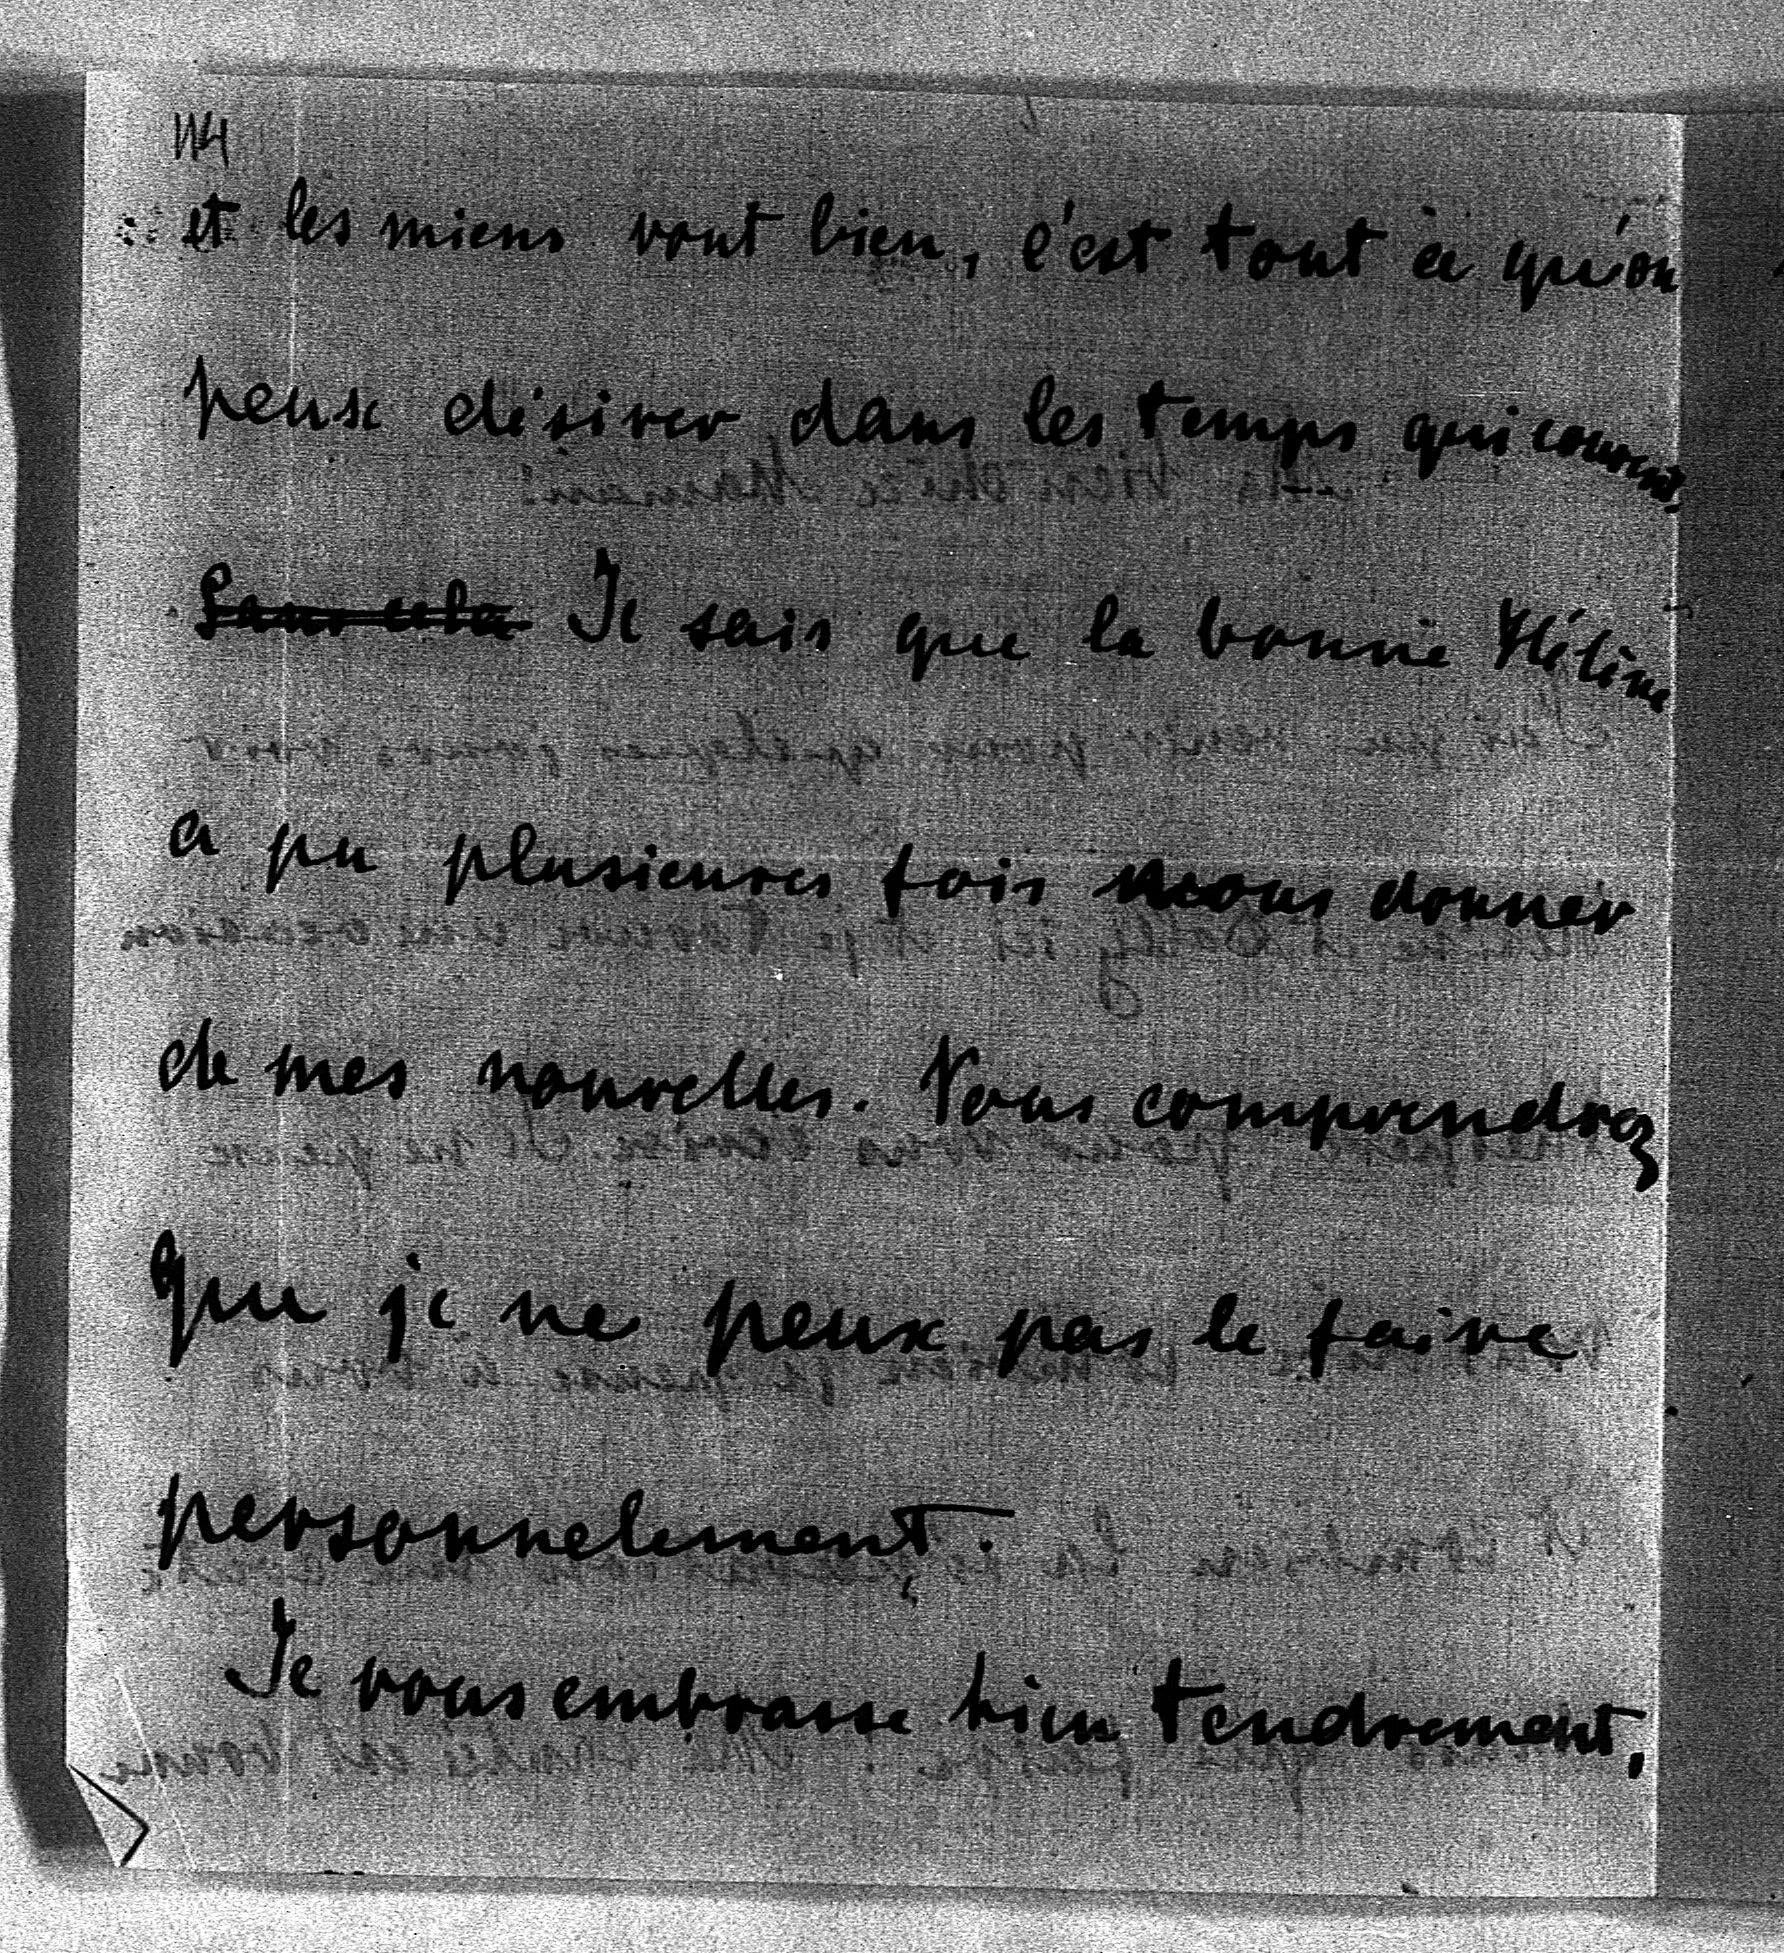 114
et les miens vont bien, c'est tout ce qu'on
peux désirer dans les temps qui courent.
Sans cela Je sais que la bonne Hélène
a pu plusieures fois vous donner
de mes nouvelles. Vous comprendrez
que je ne peux pas le faire
personnelement.
Je vous embrasse bien tendrement,